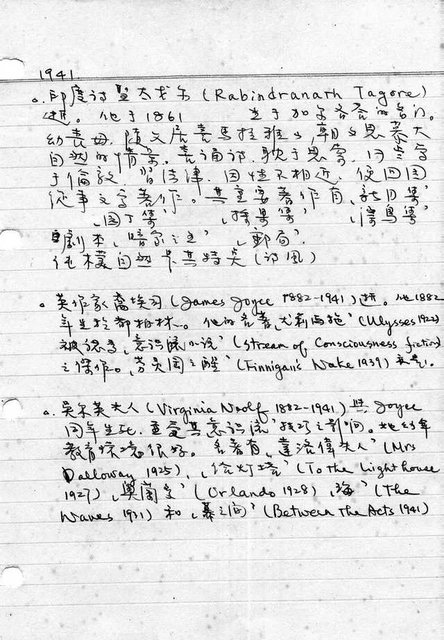 1941
。印度詩聖太戈尔 (Rabindranath Tagore)
逝。他于1861 生于加尔各答的名门。
幼丧母，随父居喜马拉雅山，朝夕思慕大
自然的情景。喜诵诗，耽于思索，
于倫敦習法津，因性不相近，便回国
從事文字著作。其重要著作有，新月集'
、園丁集'
劇本、暗室之王' 、郵局'
。英作家喬埃斯 (James Joyce 1882-1941) 逝。他1882
年生於都柏林。他的名著、尤利西斯' (Ulysses 1922)
被認為、意識流小說' (Stream of Consciousness fiction)
之傑作。芬尼根之醒' (Finnigan's Wake 1939)
。吳尔芙夫人 (Virginia Woolf 1882-1941) 與 Joyce
同年生死，
教育环境很好。名著有、達洛偉夫人' (Mrs
Dalloway 1925)、、灯塔' (To the Light house
1927)、奧蘭多' (Orlando 1928)、海' (The
Waves 1931) 和、幕之间' (Between the Acts 1941)